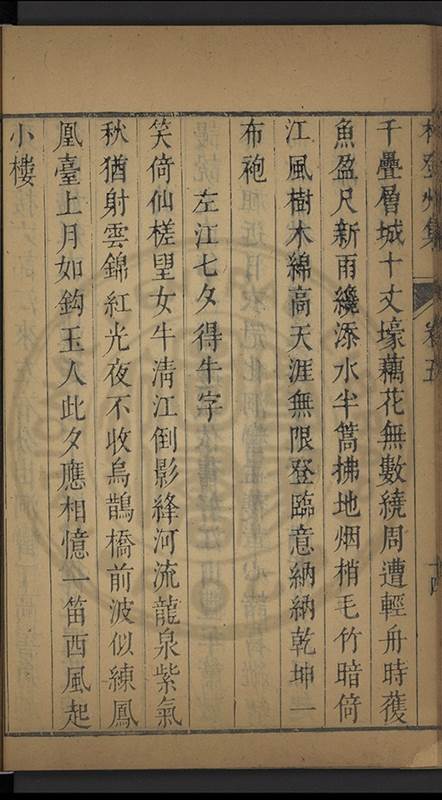 林登州集 卷五
千疊層城十丈壕藕花無數繞周遭輕舟時獲
魚盈尺新雨纔添水半篙拂地烟梢毛竹暗倚
江風樹木綿高天涯無限登臨意納納乾坤一
布袍
左江七夕得牛字
笑倚仙槎望女牛清江倒影絳河流龍泉紫氣
秋猶射雲錦紅光夜不收烏鵲橋前波似練鳳
凰臺上月如鈎玉人此夕應相憶一笛西風起
小樓